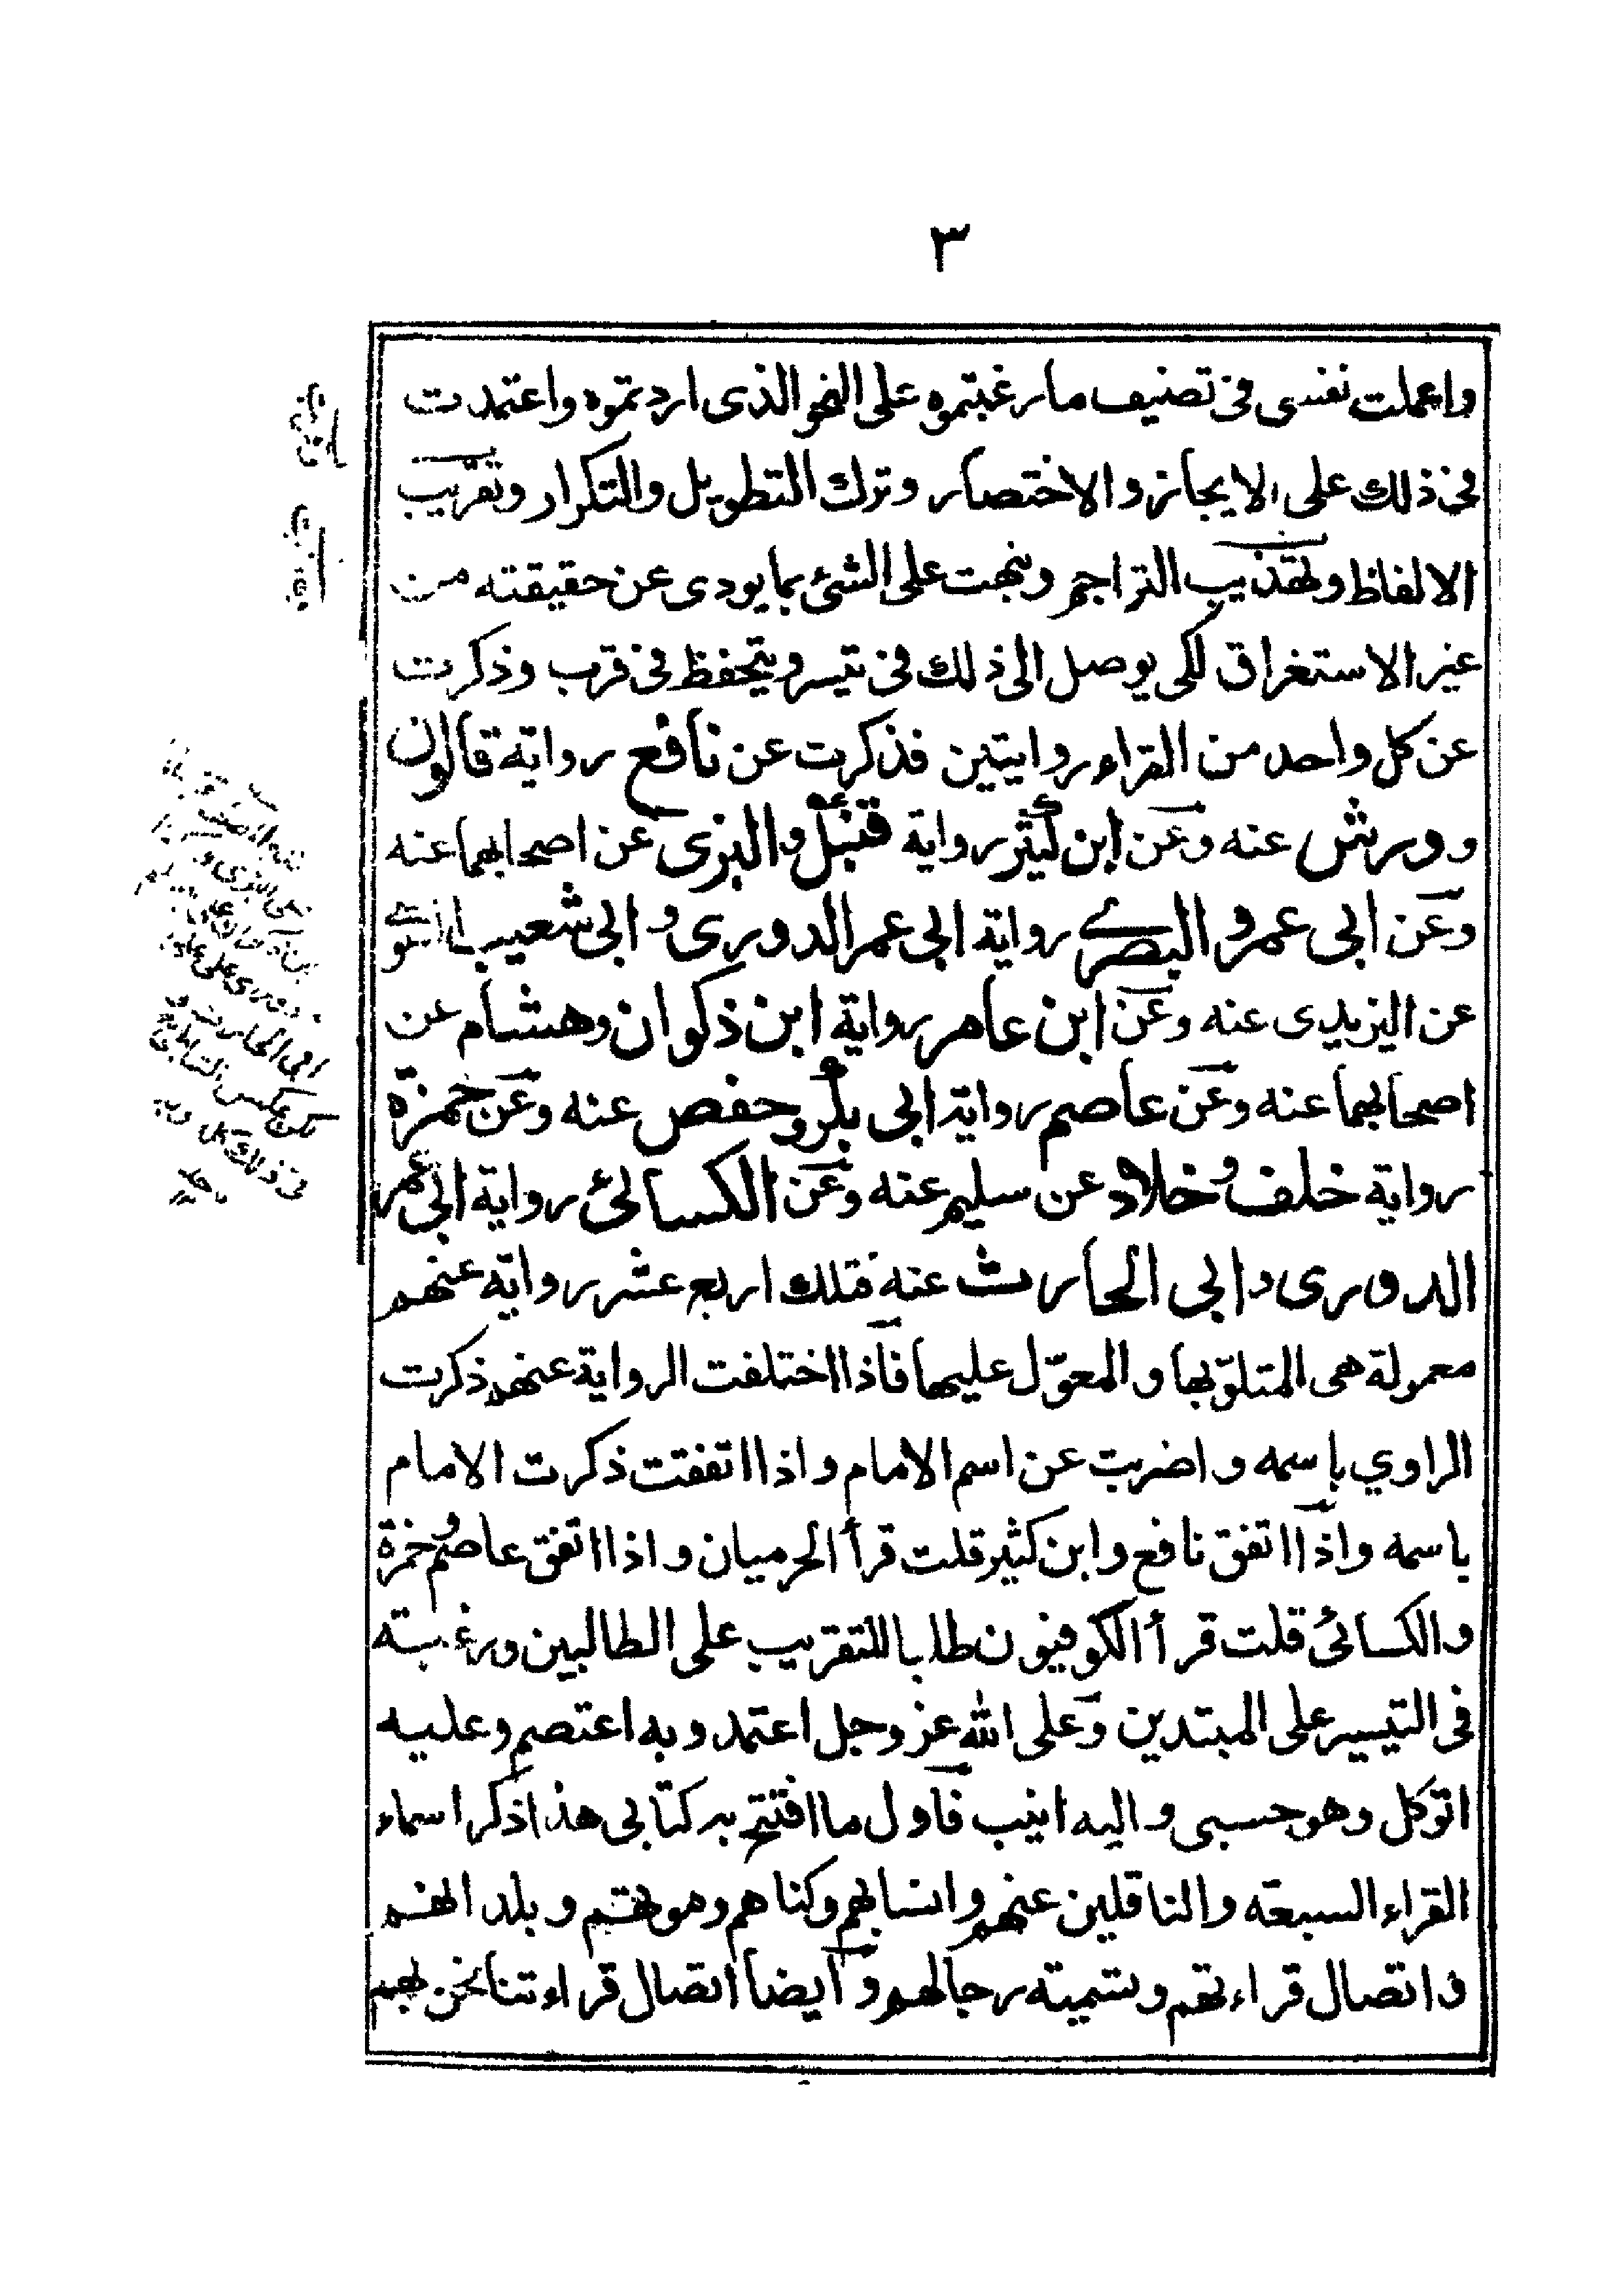 ٣
واعملت نفسى فى تصنيف ما رغبتموه على النحو الذى اردتموه واعتمدت
فى ذلك على الايجاز والاختصار وترك التطويل والتكرار وتقريب
الالفاظ وتهذيب التراجم ونبهت على الشئ بما يودى عن حقيقته من
غير الاستغراق لكى يوصل الى ذلك فى تيسر ويتحفظ فى قرب وذكرت
عن كل واحد من القراء روايتين فذكرت عن نافع رواية قالون
وورش عنه وعن ابن كثير رواية قنبل والبزى عن اصحابهما عنه
وعن ابى عمرو البصرى رواية ابى عمر الدورى وابى شعيب السوسى
عن اليزيدى عنه وعن ابن عامر رواية ابن ذكوان وهشام عن
اصحابهما عنه وعن عاصم رواية ابى بكر وحفص عنه وعن حمزة
رواية خلف وخلاد عن سليم عنه وعن الكسائى رواية ابى عمر
الدورى وابى الحارث عنه فتلك اربع عشر رواية عنهم
معمولة هى المتلوّ بها والمعوّل عليها فاذا اختلفت الرواية عنهم ذكرت
الراوي باسمه واضربت عن اسم الامام واذا اتفقت ذكرت الامام
باسمه واذا اتفق نافع وابن كثير قلت قرأ الحرميان واذا اتفق عاصم وحمزة
والكسائى قلت قرأ الكوفيون طلبا للتقريب على الطالبين ورغبة
فى التيسير على المبتدين وعلى الله عز وجل اعتمد وبه اعتصم وعليه
اتوكل وهو حسبى واليه انيب فاول ما افتتح به كتابى هذا ذكر اسماء
القراء السبعة والناقلين عنهم وانسابهم وكناهم وموتهم وبلدانهم
واتصال قراءتهم وتسمية رجالهم وايضا اتصال قراءتنا نحن بهم